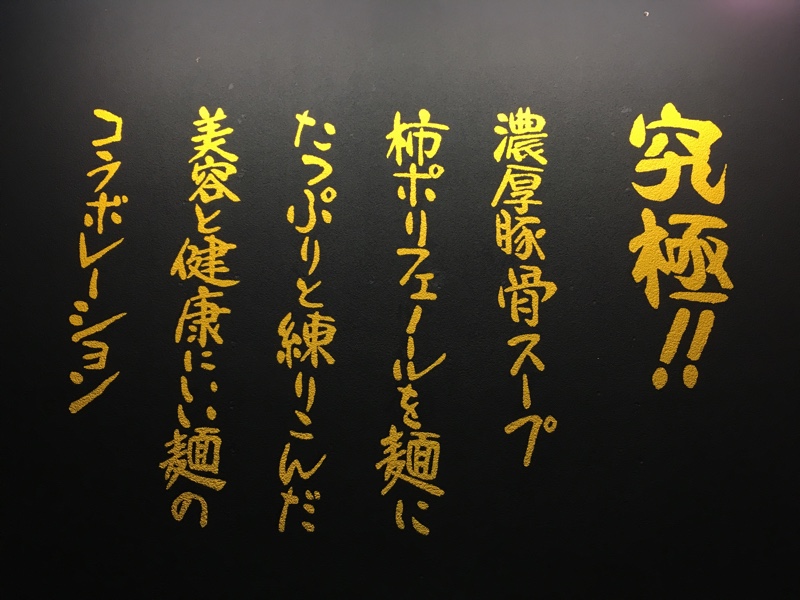 究極!!
濃厚豚骨スープ
柿ポリフェノールを麺に
たっぷりと練りこんだ
美容と健康にいい麺の
コラボレーション